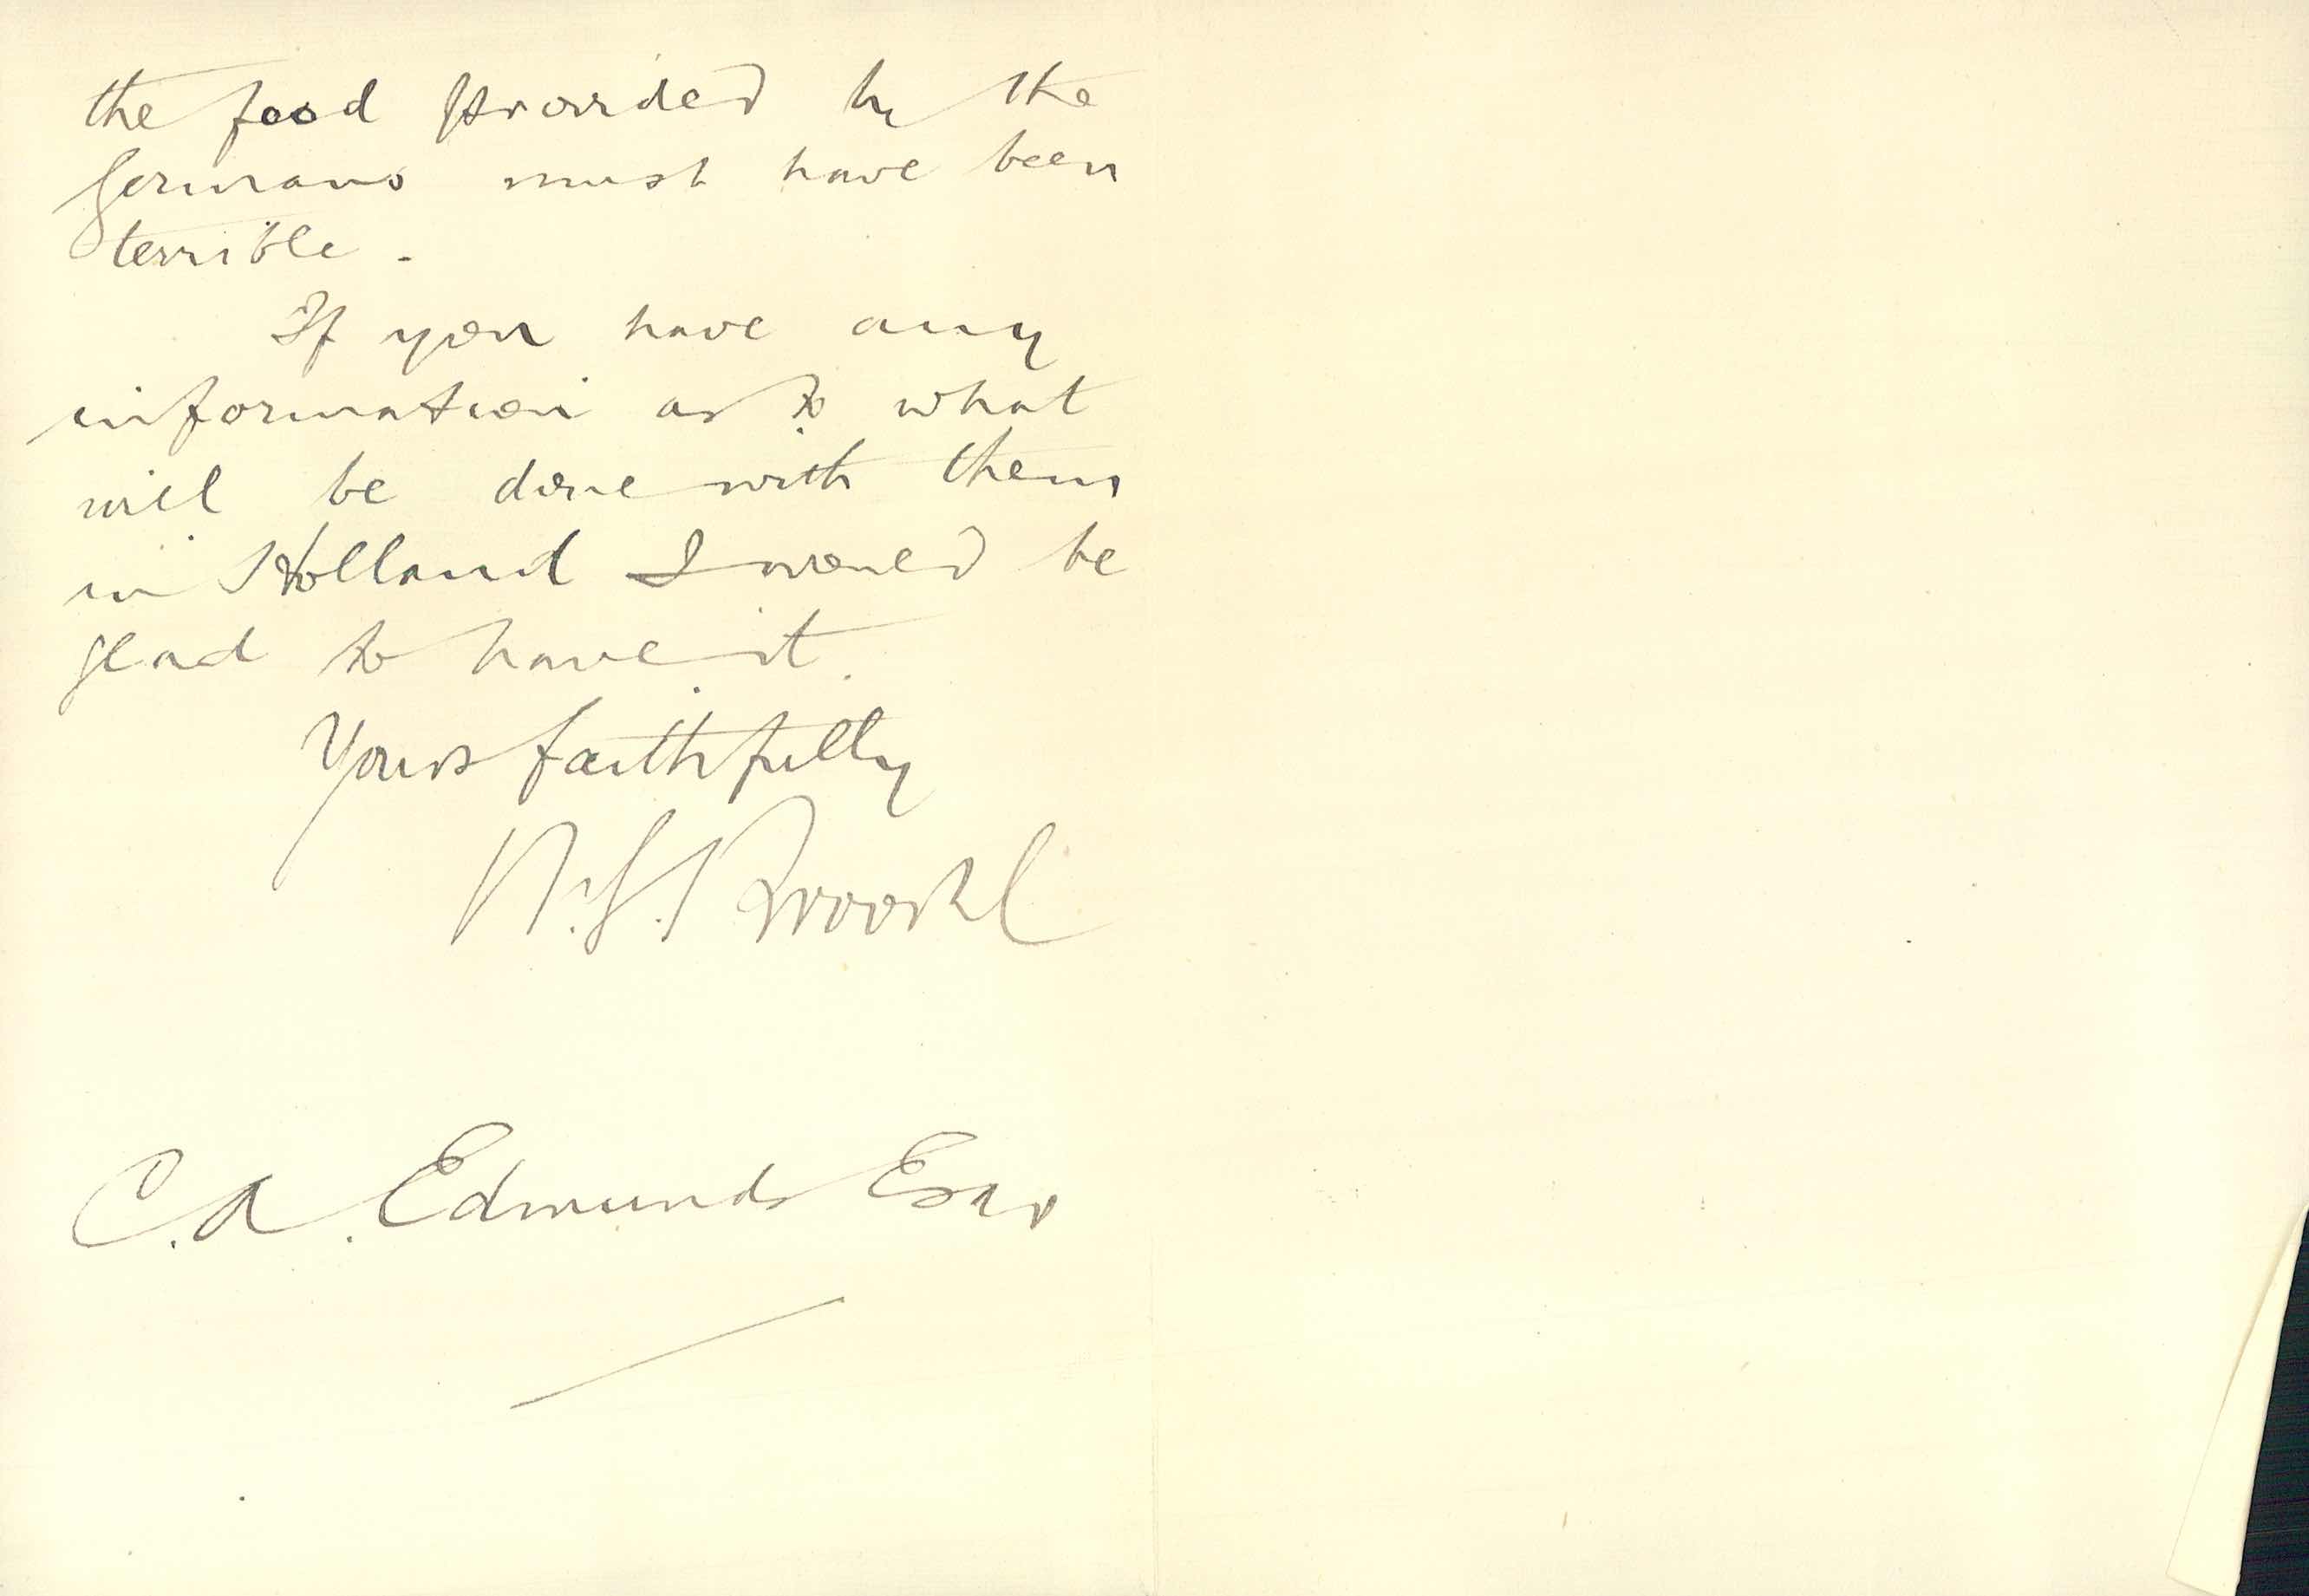 the food provided by the
Germans must have been
terrible.
If you have any
information as to what
will be done with them
in Holland I would be
glad to have it.
Yours faithfully
C.A. Edmunds Esqr